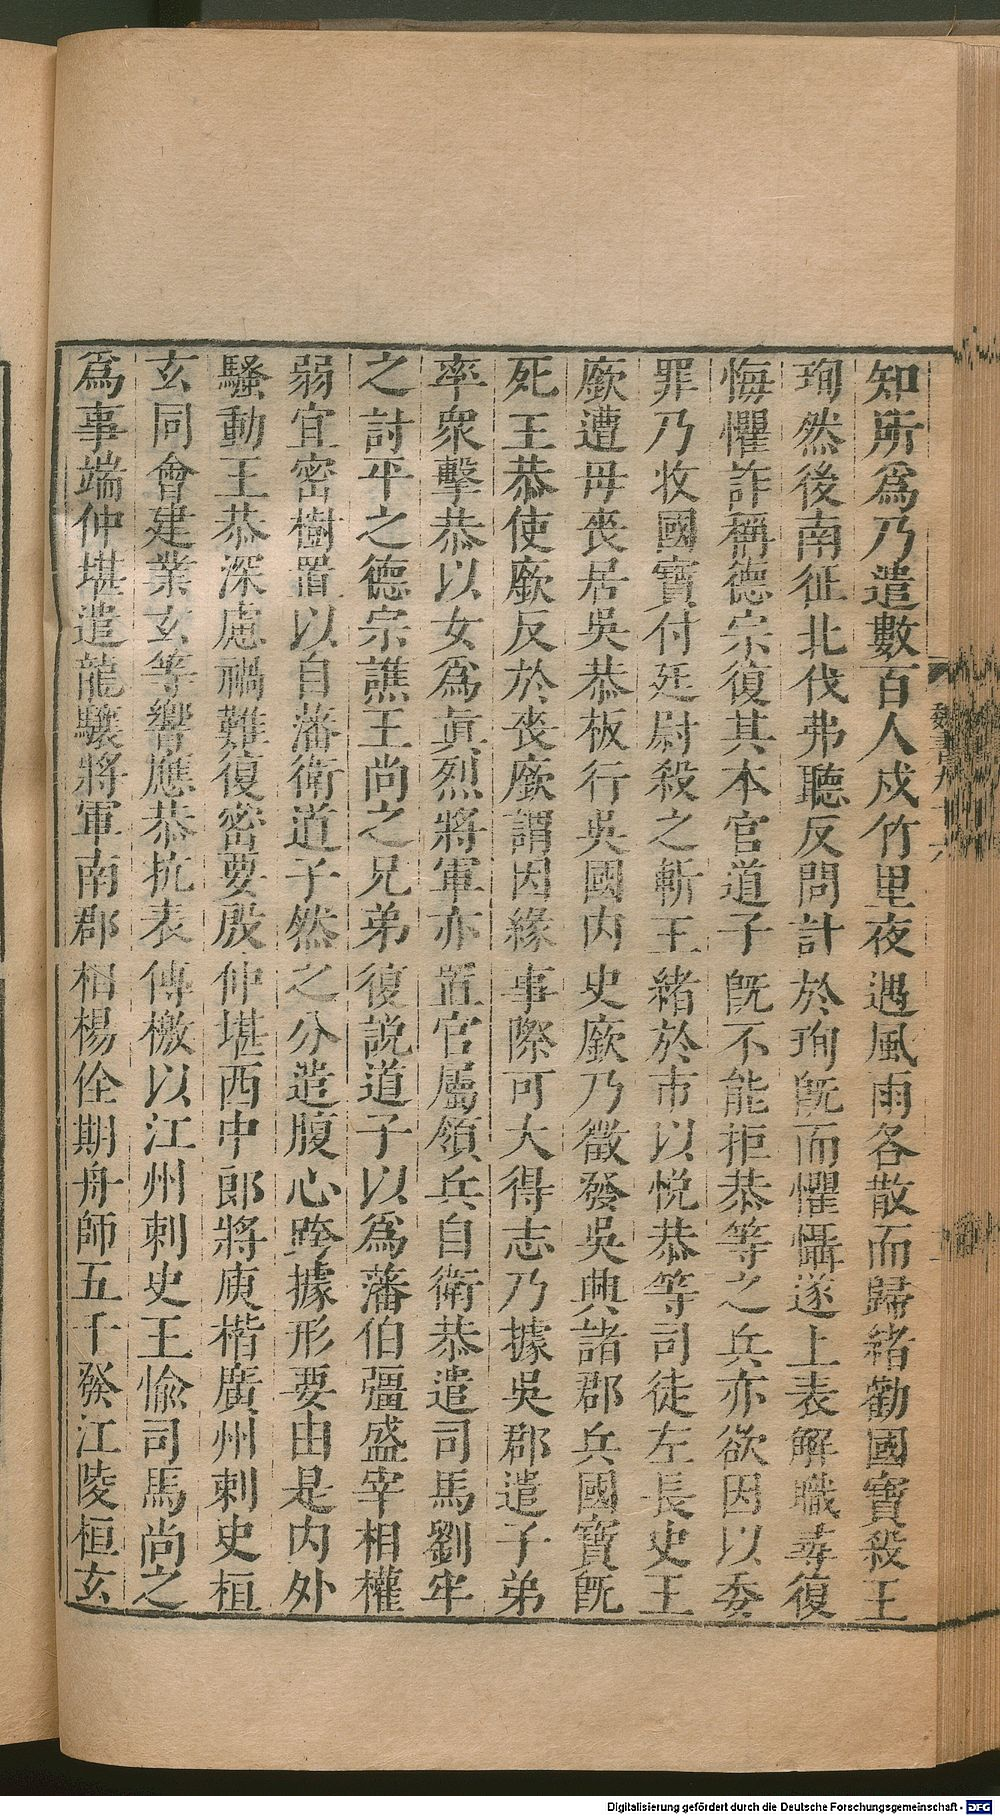 知所爲乃遣數百人戍竹里夜遇風雨各散而歸緒勸國寶殺王
珣然後南征北伐弗聽反問計於珣旣而懼懾遂上表解職尋復
悔懼詐稱德宗復其本官道子旣不能拒恭等之兵亦欲因以委
罪乃收國寶付廷尉殺之斬王緒於市以悅恭等司徒左長史王
廞遭母喪居吳恭板行吳國內史廞乃徵發吳興諸郡兵國寶旣
死王恭使廞反於喪廞謂因緣事際可大得志乃據吳郡遣子弟
率衆擊恭以女爲眞烈將軍亦置官屬領兵自衛恭遣司馬劉牢
之討平之德宗譙王尚之兄弟復説道子以爲藩伯彊盛宰相權
弱宜密樹置以自藩衛道子然之分遣腹心跨據形要由是內外
騷動王恭深慮禍難復密要殷仲堪西中郎將庾楷廣州刺史桓
玄同會建業玄等響應恭抗表傳檄以江州刺史王愉司馬尚之
爲事端仲堪遣龍驤將軍南郡相楊佺期舟師五千發江陵桓玄
魏書九十六
Digitalisierung gefördert durch die Deutsche Forschungsgemeinschaft - DFG